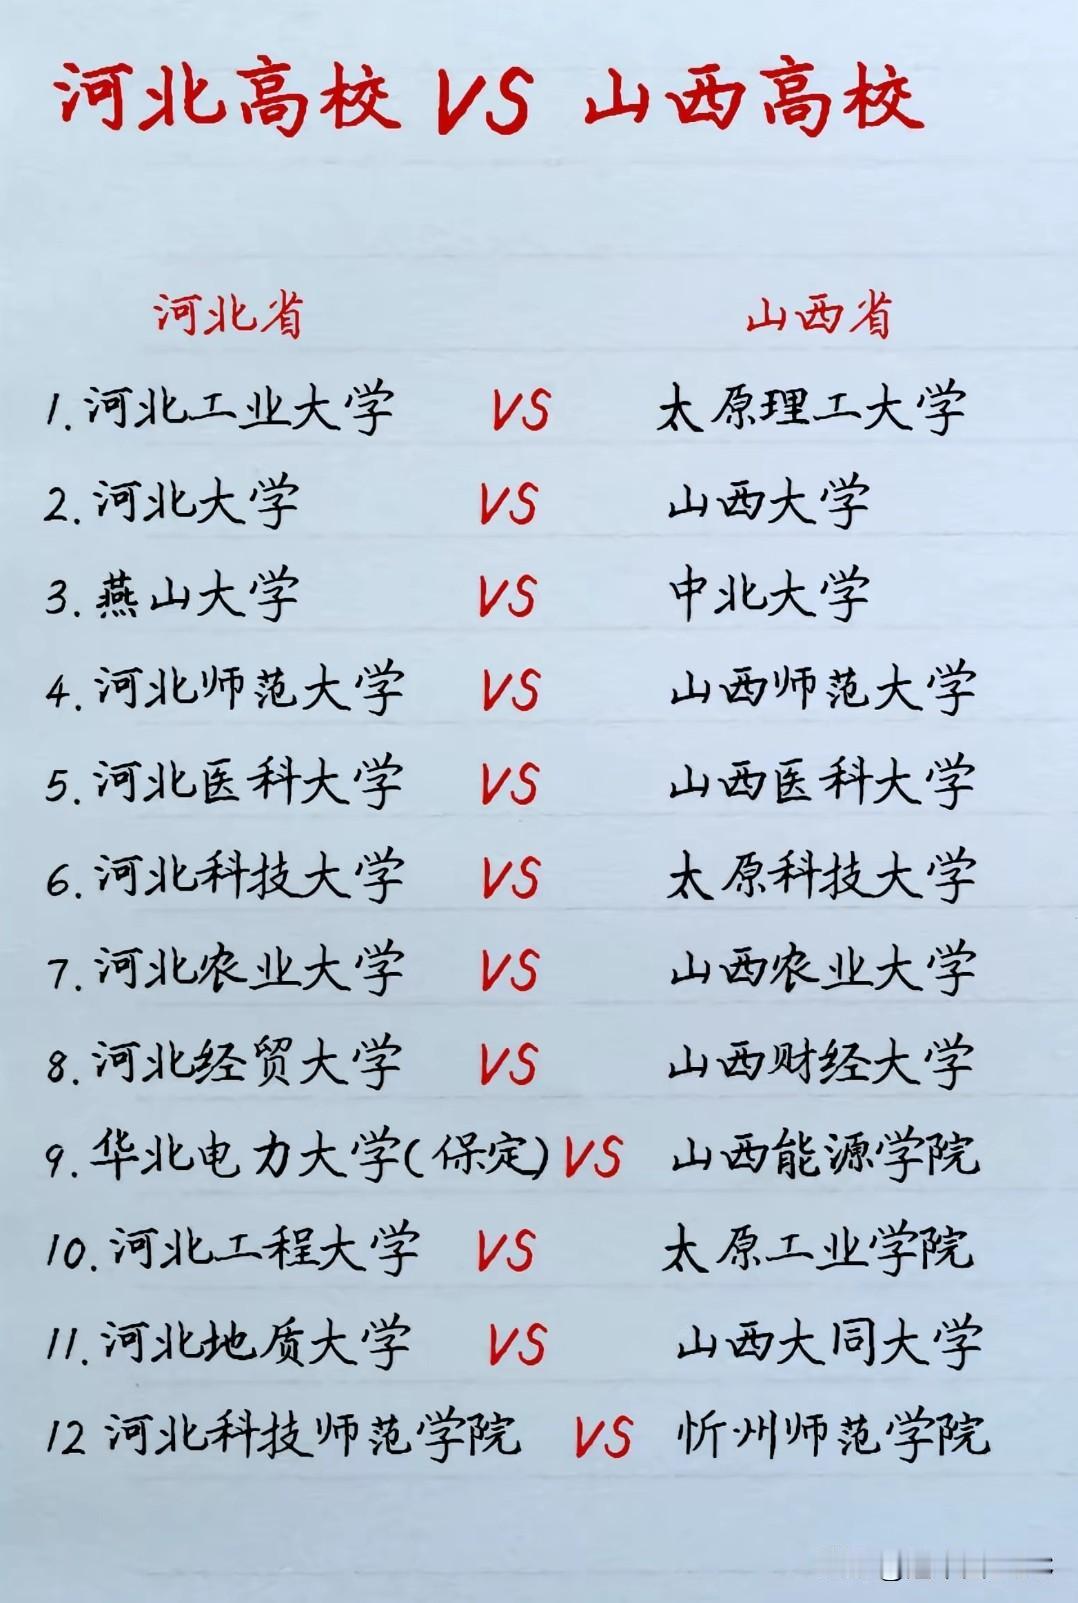 河北高校 VS 山西高校
河北省 山西省
1.河北工业大学 VS 太原理工大学
2.河北大学 VS 山西大学
3.燕山大学 VS 中北大学
4.河北师范大学 VS 山西师范大学
5.河北医科大学 VS 山西医科大学
6.河北科技大学 VS 太原科技大学
7.河北农业大学 VS 山西农业大学
8.河北经贸大学 VS 山西财经大学
9.华北电力大学(保定) VS 山西能源学院
10.河北工程大学 VS 太原工业学院
11.河北地质大学 VS 山西大同大学
12 河北科技师范学院 VS 忻州师范学院